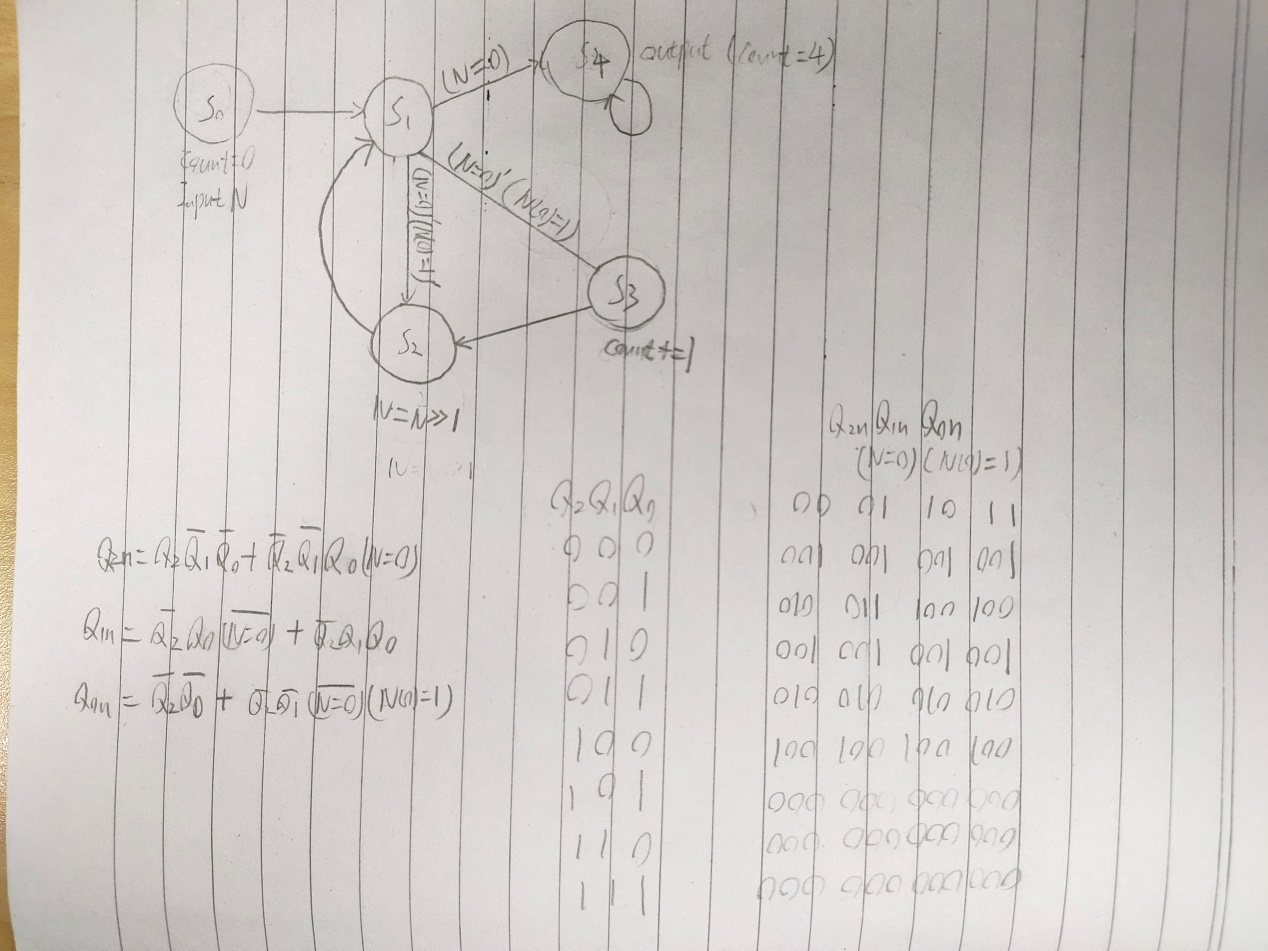 S₀
Count=0
Input N
S₁
(N=0)
S4
output (Count=4)
(N=0)'(N(0)=1)
(N=0)'(N(0)=1)'
S3
Count+=1
S₂
N=N>>1
N= 1
Q₂n=Q₂Q̅₁Q̅₀+Q̅₂Q̅₁Q₀(N=0)
Q₁n=Q̅₂Q₀(N=0)̅+Q̅₂Q₁Q₀
Q₀n=Q̅₂Q̅₀+Q̅₂Q̅₁(N=0)̅(N(0)=1)
Q₂n Q₁n Q₀n
(N=0)(N(0)=1)
Q₂Q₁Q₀ 00 01 10 11
0 0 0 001 001 001 001
0 0 1 010 011 100 100
0 1 0 001 001 001 001
0 1 1 010 010 010 010
1 0 0 100 100 100 100
1 0 1 000 000 000 000
1 1 0 000 000 000 000
1 1 1 000 000 000 000